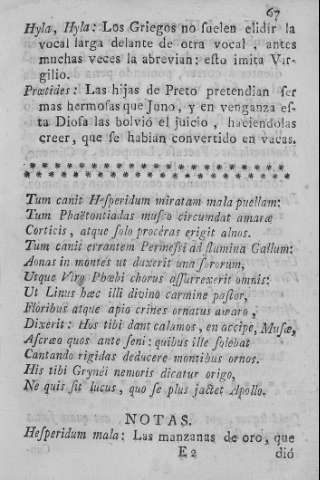 67
Hyla, Hyla: Los Griegos no ſuelen elidir la
vocal larga delante de otra vocal, antes
muchas veces la abrevian: eſto imita Vir-
gilio.
Prœtides: Las hijas de Preto pretendian ſer
mas hermoſas que Juno, y en venganza eſ-
ta Dioſa las bolvió el juicio, haciendolas
creer, que ſe habian convertido en vacas.
Tum canit Heſperidum miratam mala puellam:
Tum Phaëtontiadas muſco circumdat amaræ
Corticis, atque ſolo procéras erigit alnos.
Tum canit errantem Permeſſi ad flumina Gallum:
Aonas in montes ut duxerit una ſororum,
Utque Viro Phœbi chorus aſſurrexerit omnis:
Ut Linus hæc illi divino carmine paſtor,
Floribus atque apio crines ornatus amaro,
Dixerit: Hos tibi dant calamos, en accipe, Muſæ,
Aſcræo quos ante ſeni: quibus ille ſolebat
Cantando rigidas deducere montibus ornos.
His tibi Grynéi nemoris dicatur origo,
Ne quis ſit lucus, quo ſe plus jactet Apollo.
NOTAS.
Heſperidum mala: Las manzanas de oro, que
E 2 dió